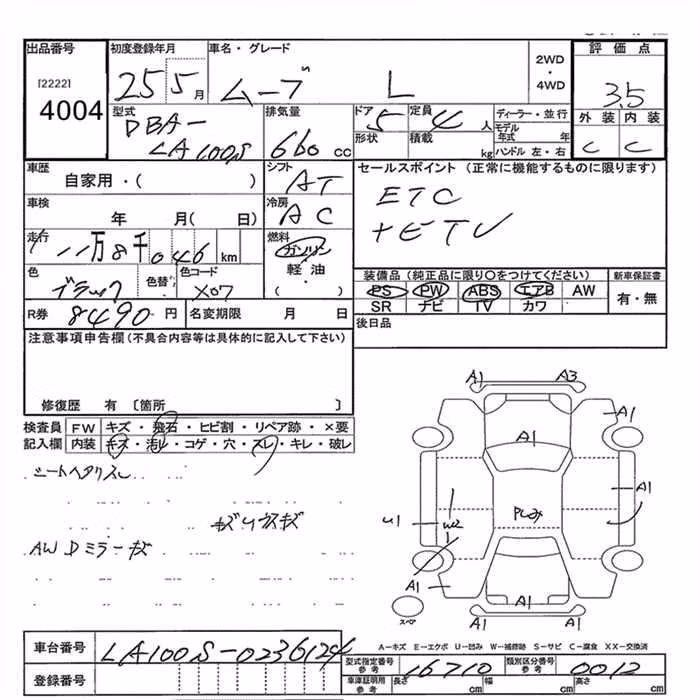 出品番号
[2222]
4004
初度登録年月
25 5 月
車名・グレード
ムーブ L
2WD
・
4WD
評価点
3.5
外装 内装
C C
型式
DBA-
LA100S
排気量
660 cc
ドア 5
形状
定員 4 人
積載 kg
ディーラー・並行
モデル年式 年
ハンドル 左・右
車歴
自家用・( )
シフト
AT
セールスポイント (正常に機能するものに限ります)
ETC
車検
年 月( 日)
冷房
AC
走行
11万8千046 km
燃料
ガソリン
軽油
( )
色
ブラック
色替
色コード
X07
装備品(純正品に限り○をつけてください)
PS PW ABS エアB AW
SR ナビ TV カワ
新車保証書
有・無
R券 8490 円
名変期限 月 日
後日品
注意事項申告欄(不具合内容等は具体的に記入して下さい)
修復歴 有〔箇所 〕
検査員 FW キズ・飛石・ヒビ割・リペア跡・×要
記入欄 内装 キズ・汚レ・コゲ・穴・スレ・キレ・破レ
シートヘタリスレ
AW Dミラーキズ
A1 A3
A1
A1
A1
U1 W2
A1
A1
A1 A1
A1
スペア
A-キズ E-エクボ U-凹み W-補修跡 S-サビ C-腐食 XX-交換済
車台番号 LA100S-0236124
登録番号
型式指定番号 参考 16710
類別区分番号 参考 0012
車庫証明用 参考 長さ cm 幅 cm 高さ cm